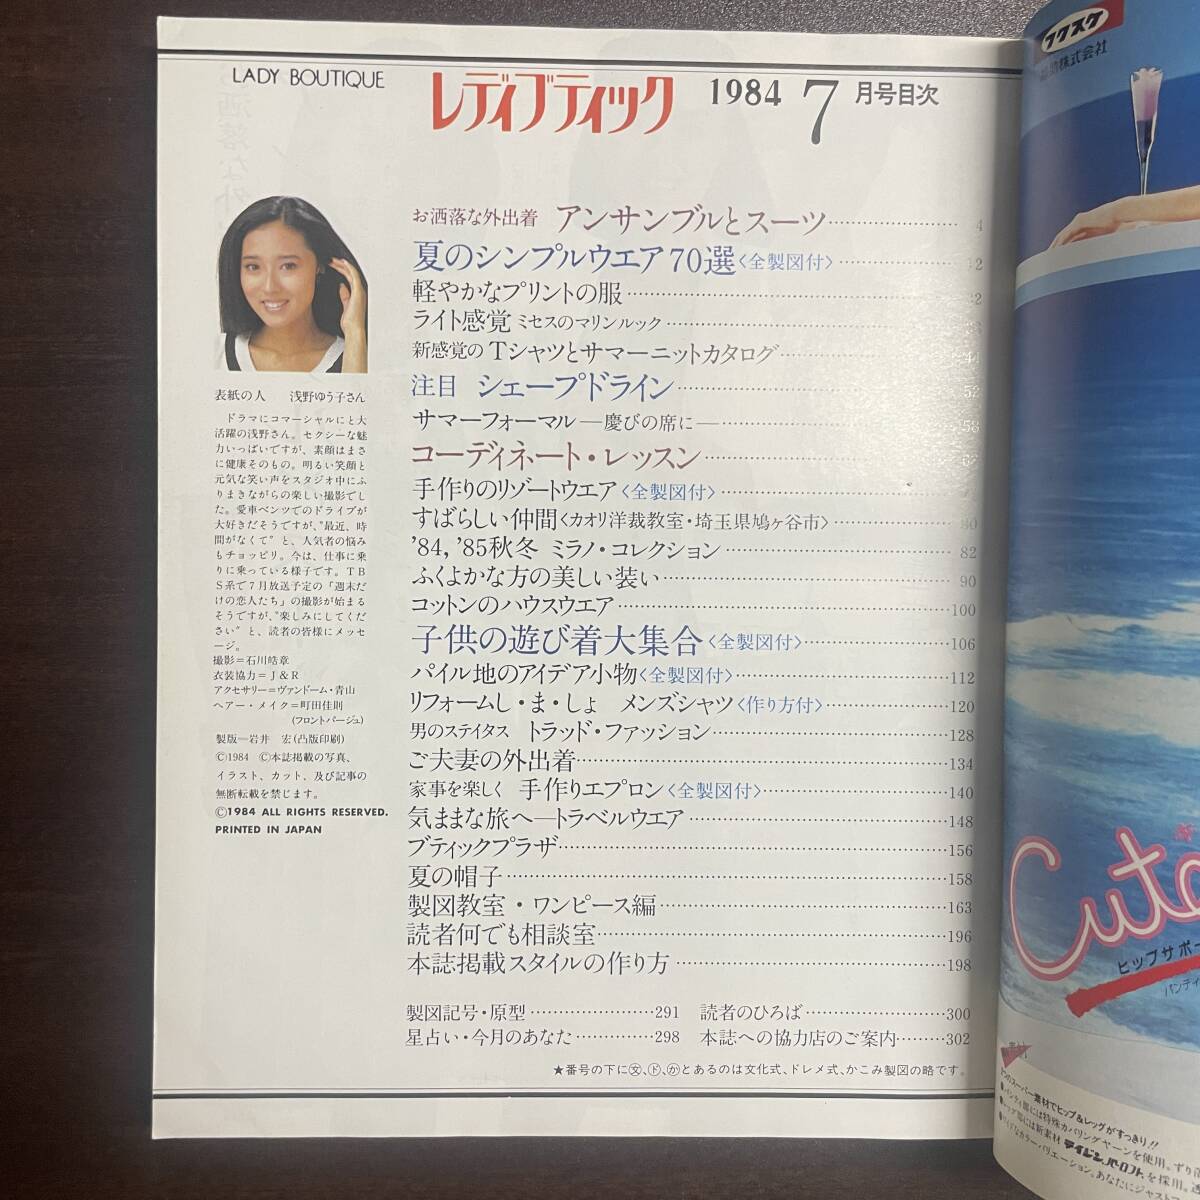 LADY BOUTIQUE
レディブティック 1984 7月号目次
お洒落な外出着 アンサンブルとスーツ 4
夏のシンプルウエア70選〈全製図付〉 12
軽やかなプリントの服
ライト感覚 ミセスのマリンルック
新感覚のTシャツとサマーニットカタログ 44
注目 シェープドライン 52
サマーフォーマル―慶びの席に― 58
コーディネート・レッスン
手作りのリゾートウエア〈全製図付〉
すばらしい仲間〈カオリ洋裁教室・埼玉県鳩ヶ谷市〉 80
'84,'85秋冬 ミラノ・コレクション 82
ふくよかな方の美しい装い 90
コットンのハウスウエア 100
子供の遊び着大集合〈全製図付〉 106
パイル地のアイデア小物〈全製図付〉 112
リフォームし・ま・しょ メンズシャツ〈作り方付〉 120
男のステイタス トラッド・ファッション 128
ご夫妻の外出着 134
家事を楽しく 手作りエプロン〈全製図付〉 140
気ままな旅へ―トラベルウエア 148
ブティックプラザ 156
夏の帽子 158
製図教室・ワンピース編 163
読者何でも相談室 196
本誌掲載スタイルの作り方 198
製図記号・原型 291 読者のひろば 300
星占い・今月のあなた 298 本誌への協力店のご案内 302
★番号の下に㊛、㋣、㋕とあるのは文化式、ドレメ式、かこみ製図の略です。
表紙の人 浅野ゆう子さん
ドラマにコマーシャルにと大
活躍の浅野さん。セクシーな魅
力いっぱいですが、素顔はまさ
に健康そのもの。明るい笑顔と
元気な笑い声をスタジオ中にふ
りまきながらの楽しい撮影でし
た。愛車ベンツでのドライブが
大好きだそうですが、"最近、時
間がなくて"と、人気者の悩み
もチョッピリ。今は、仕事に乗
りに乗っている様子です。TB
S系で7月放送予定の「週末だ
けの恋人たち」の撮影が始まる
そうですが、"楽しみにしてくだ
さい"と、読者の皆様にメッセ
ージ。
撮影＝石川皓章
衣装協力＝J＆R
アクセサリー＝ヴァンドーム・青山
ヘアー・メイク＝町田佳則
(フロントパージュ)
製版―岩井 宏(凸版印刷)
©1984 ©本誌掲載の写真、
イラスト、カット、及び記事の
無断転載を禁じます。
©1984 ALL RIGHTS RESERVED.
PRINTED IN JAPAN
フクスケ
株式会社
ヒップサポー
パンティ
つのスーパー素材でヒップ&レッグがすっきり!!